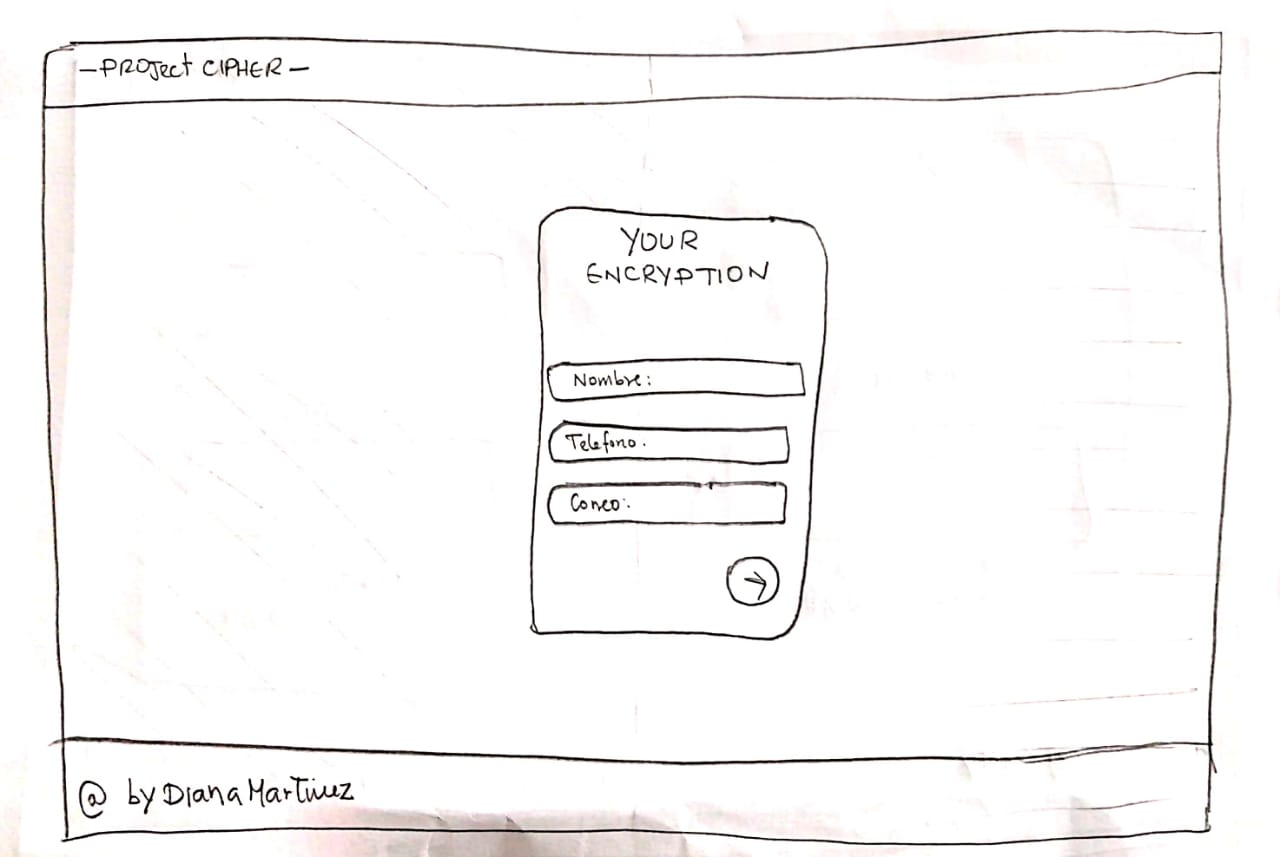 —PROJECT CIPHER—
YOUR
ENCRYPTION
Nombre:
Telefono.
Correo:
@ by Diana Martinez